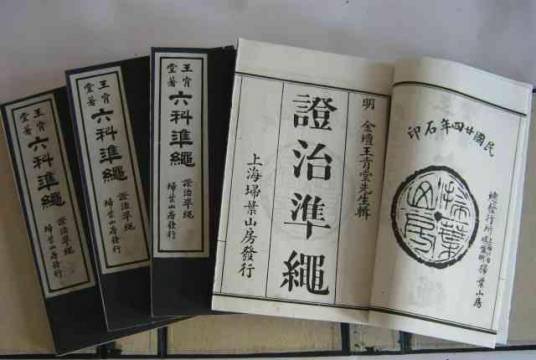 王肯堂著
六科準繩
證治準繩
掃葉山房發行
王肯堂著
六科準繩
證治準繩
掃葉山房發行
王肯堂著
六科準繩
證治準繩
掃葉山房發行
明 金壇王肯堂先生輯
證治準繩
上海掃葉山房發行
民國廿四年石印
掃葉山房
總發行所
掃葉山房